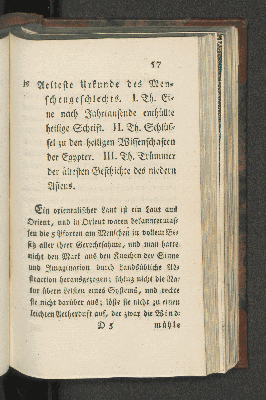 57
Aelteste Urkunde des Men-
schengeschlechts. I. Th. Ei-
ne nach Jahrtausende enthüllte
heilige Schrift. II. Th. Schlüs-
sel zu den heiligen Wissenschaften
der Egypter. III. Th. Trümmer
der ältesten Geschichte des niedern
Asiens.
Ein orientalischer Laut ist ein Laut aus
Orient, und in Orient waren bekanntermas-
sen die 5 Pforten am Menschen in vollem Be-
sitz aller ihrer Gerechtsahme, und man hatte
nicht den Mark aus den Knochen der Sinne
und Imagination durch Landsübliche Ab-
straction herausgezogen; schlug nicht die Na-
tur übern Leisten eines Systems, und reckte
sie nicht darüber aus; löste sie nicht zu einen
leichten Aetherduft auf, der zwar die Wind-
D 5 mühle